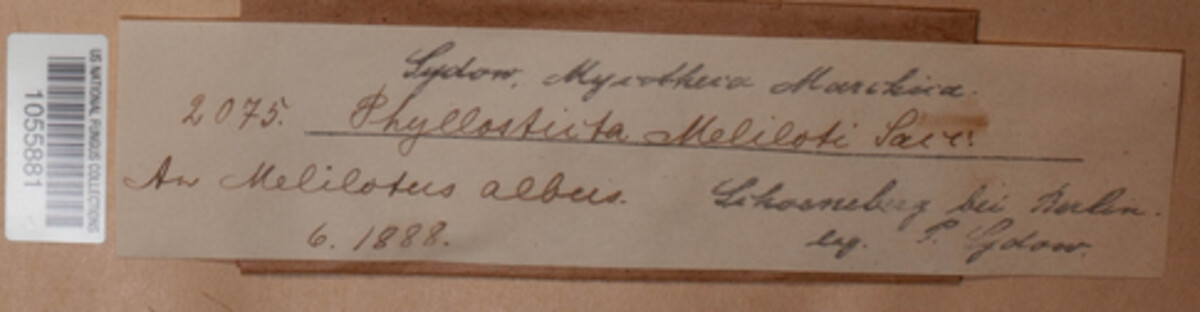 Sydow, Mycotheca Marchica.
2075. Phyllosticta Meliloti Sacc.
An Melilotus albus.
6. 1888.
Schoeneberg bei Berlin.
leg. P. Sydow.
US NATIONAL FUNGUS COLLECTIONS
1055881